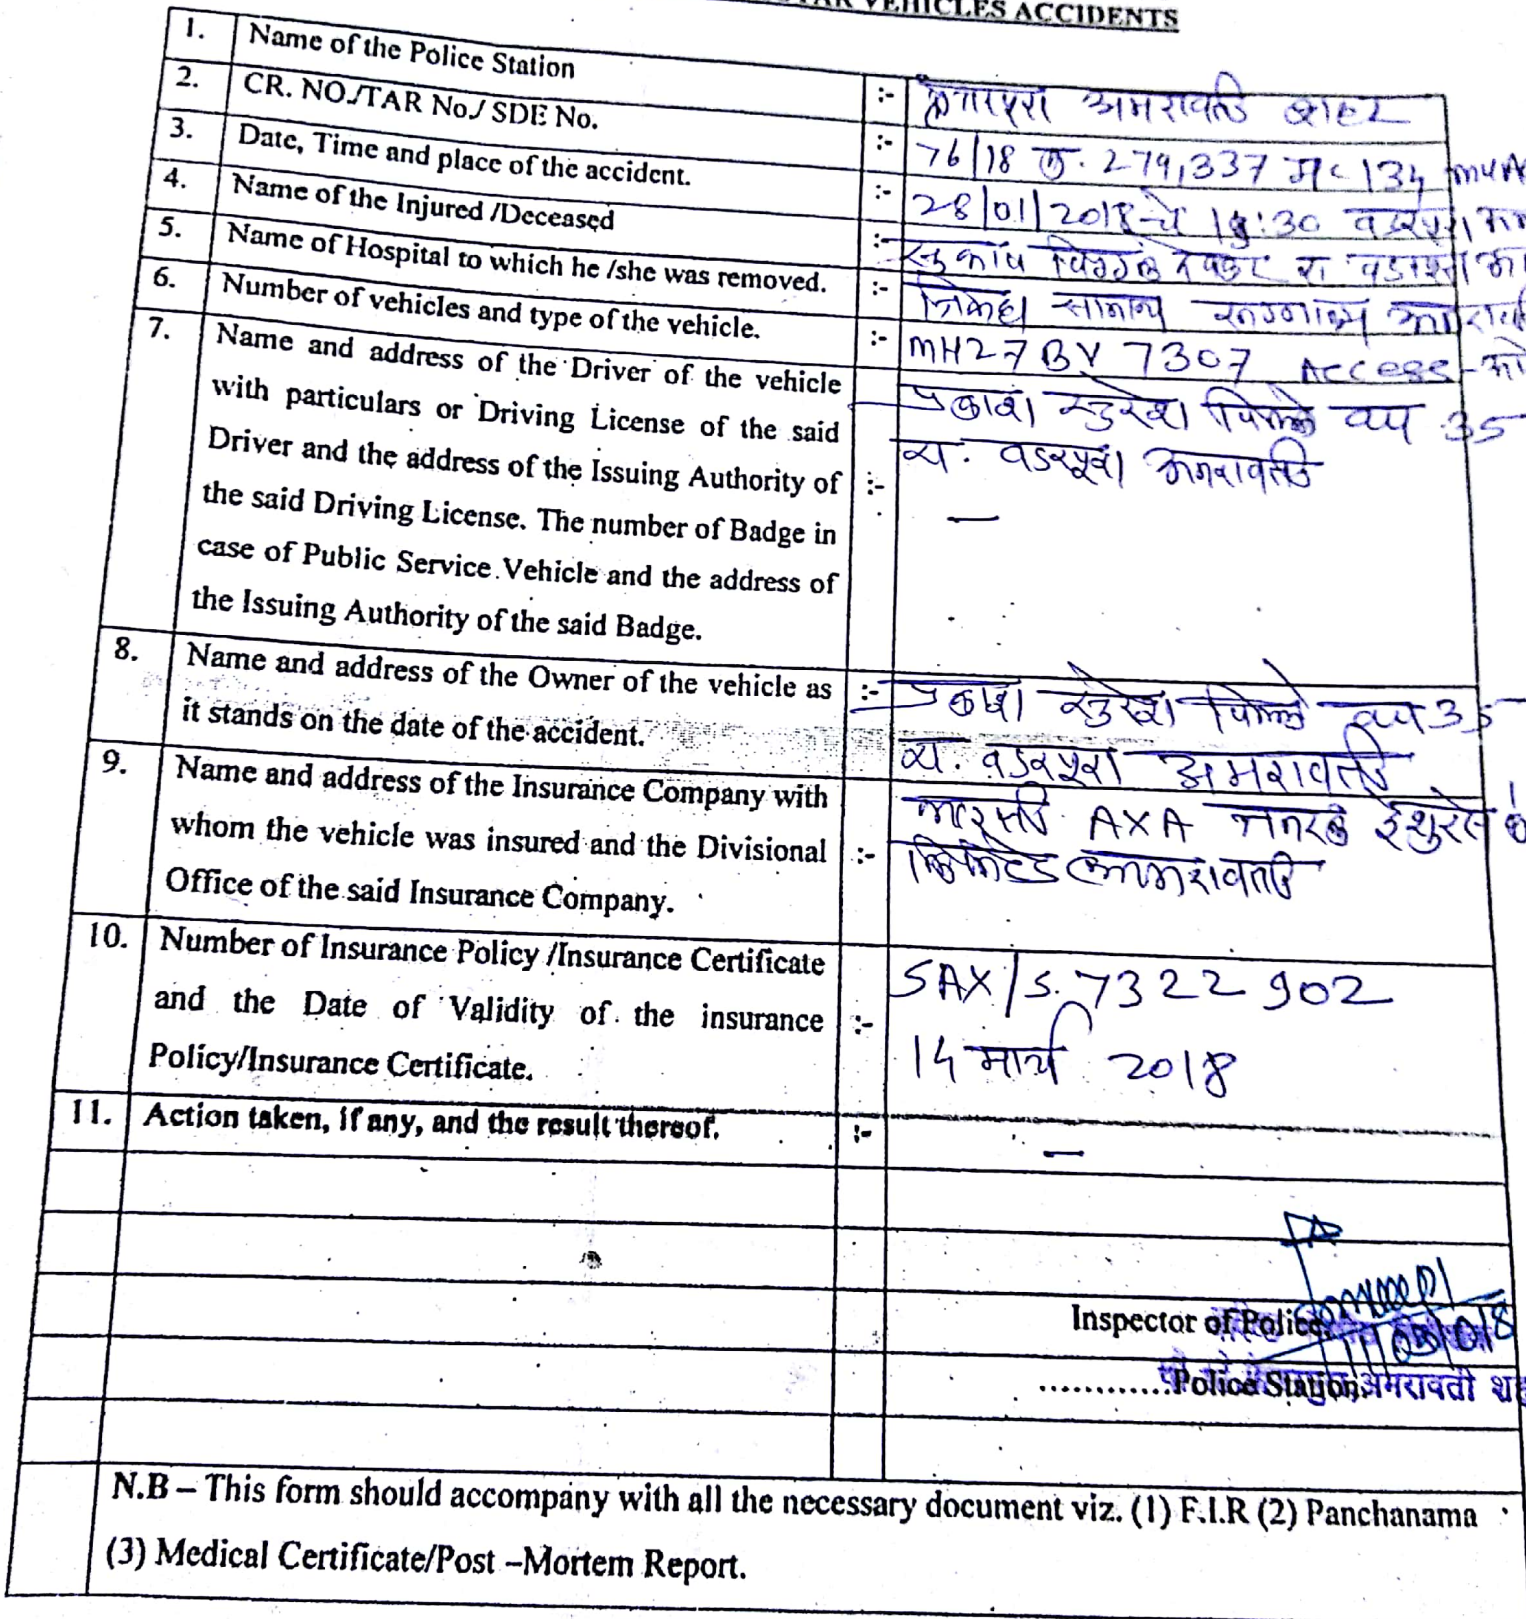 VEHICLES ACCIDENTS
1. Name of the Police Station :- अमरावती शहर
2. CR. NO./TAR No./ SDE No. :- 76/18 279,337 134
3. Date, Time and place of the accident. :- 28/01/2018 चे :30 वडरपुरा
4. Name of the Injured /Deceased :-
5. Name of Hospital to which he /she was removed. :- सामान्य
6. Number of vehicles and type of the vehicle. :- MH27 BV 7307 Access
7. Name and address of the Driver of the vehicle प्रकाश सुरेश वय 35
with particulars or Driving License of the said रा. वडरपुरा अमरावती
Driver and the address of the Issuing Authority of :- —
the said Driving License. The number of Badge in
case of Public Service Vehicle and the address of
the Issuing Authority of the said Badge.
8. Name and address of the Owner of the vehicle as :- प्रकाश सुरेश वय 35
it stands on the date of the accident. रा. वडरपुरा अमरावती
9. Name and address of the Insurance Company with AXA जनरल
whom the vehicle was insured and the Divisional :- लिमिटेड अमरावती
Office of the said Insurance Company.
10. Number of Insurance Policy /Insurance Certificate SAX/S. 7322902
and the Date of Validity of the insurance :- 14 मार्च 2018
Policy/Insurance Certificate.
11. Action taken, if any, and the result thereof. :- —
Inspector of Police
.............Police Station, अमरावती
N.B – This form should accompany with all the necessary document viz. (1) F.I.R (2) Panchanama
(3) Medical Certificate/Post –Mortem Report.